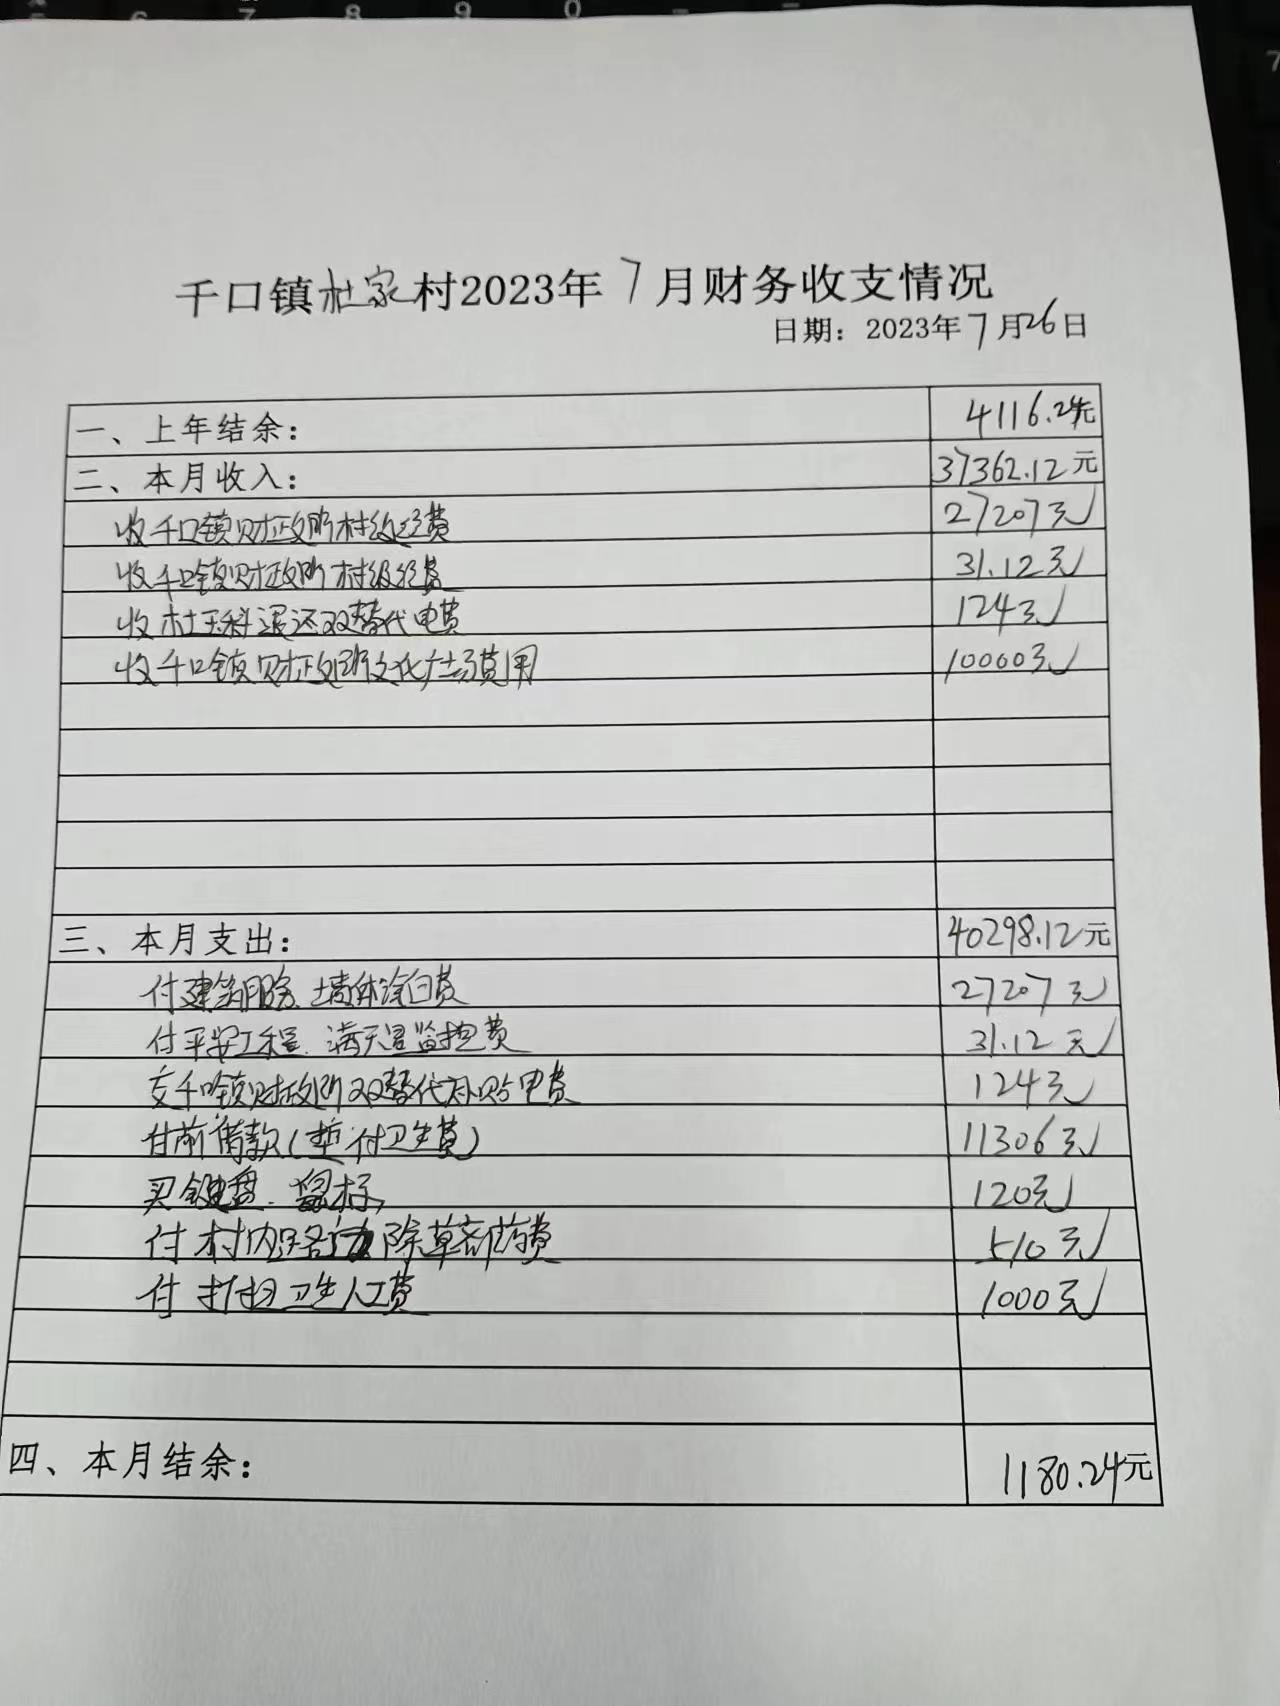 千口镇杜家村2023年7月财务收支情况
日期：2023年7月26日
一、上年结余： 4116.24元
二、本月收入： 37362.12元
收千口镇财政所村级经费 27207元
收千口镇财政所村级经费 31.12元
收杜玉科退还双替代电费 124元
收千口镇财政所文化广场费用 10000元
三、本月支出： 40298.12元
付建筑服务、墙体涂白费 27207元
付平安工程、满天星监控费 31.12元
交千口镇财政所双替代补贴电费 124元
付前借款(垫付卫生费) 11306元
买键盘、鼠标, 120元
付村内路边除草剂药费 510元
付打扫卫生人工费 1000元
四、本月结余： 1180.24元